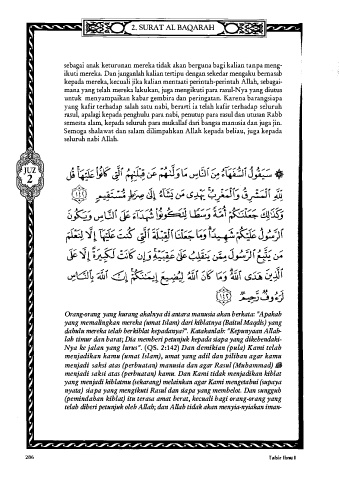 2. SURAT AL BAQARAH
sebagai anak keturunan mereka tidak akan berguna bagi kalian tanpa meng-
ikuti mereka. Dan janganlah kalian tertipu dengan sekedar mengaku bernasab
kepada mereka, kecuali jika kalian mentaati perintah-perintah Allah, sebagai-
mana yang telah mereka lakukan, juga mengikuti para rasul-Nya yang diutus
untuk menyampaikan kabar gembira dan peringatan. Karena barangsiapa
yang kafir terhadap salah satu nabi, berarti ia telah kafir terhadap seluruh
rasul, apalagi kepada penghulu para nabi, penutup para rasul dan utusan Rabb
semesta alam, kepada seluruh para mukallaf dari bangsa manusia dan juga jin.
Semoga shalawat dan salam dilimpahkan Allah kepada beliau, juga kepada
seluruh nabi Allah.
JUZ
2
۞ سَيَقُولُ السُّفَهَاءُ مِنَ النَّاسِ مَا وَلَّىٰهُمْ عَن قِبْلَتِهِمُ الَّتِي كَانُوا عَلَيْهَا قُل
لِّلَّهِ الْمَشْرِقُ وَالْمَغْرِبُ يَهْدِي مَن يَشَاءُ إِلَىٰ صِرَٰطٍ مُّسْتَقِيمٍ ﴿١٤٢﴾
وَكَذَٰلِكَ جَعَلْنَٰكُمْ أُمَّةً وَسَطًا لِّتَكُونُوا شُهَدَاءَ عَلَى النَّاسِ وَيَكُونَ
الرَّسُولُ عَلَيْكُمْ شَهِيدًا وَمَا جَعَلْنَا الْقِبْلَةَ الَّتِي كُنتَ عَلَيْهَا إِلَّا لِنَعْلَمَ
مَن يَتَّبِعُ الرَّسُولَ مِمَّن يَنقَلِبُ عَلَىٰ عَقِبَيْهِ وَإِن كَانَتْ لَكَبِيرَةً إِلَّا عَلَى
الَّذِينَ هَدَى اللَّهُ وَمَا كَانَ اللَّهُ لِيُضِيعَ إِيمَٰنَكُمْ إِنَّ اللَّهَ بِالنَّاسِ
لَرَءُوفٌ رَّحِيمٌ ﴿١٤٣﴾
Orang-orang yang kurang akalnya di antara manusia akan berkata: "Apakah
yang memalingkan mereka (umat Islam) dari kiblatnya (Baitul Maqdis) yang
dahulu mereka telah berkiblat kepadanya?". Katakanlah: "Kepunyaan Allah-
lah timur dan barat; Dia memberi petunjuk kepada siapa yang dikehendaki-
Nya ke jalan yang lurus". (QS. 2:142) Dan demikian (pula) Kami telah
menjadikan kamu (umat Islam), umat yang adil dan pilihan agar kamu
menjadi saksi atas (perbuatan) manusia dan agar Rasul (Muhammad) ﷺ
menjadi saksi atas (perbuatan) kamu. Dan Kami tidak menjadikan kiblat
yang menjadi kiblatmu (sekarang) melainkan agar Kami mengetahui (supaya
nyata) siapa yang mengikuti Rasul dan siapa yang membelot. Dan sungguh
(pemindahan kiblat) itu terasa amat berat, kecuali bagi orang-orang yang
telah diberi petunjuk oleh Allah; dan Allah tidak akan menyia-nyiakan iman-
286
Tafsir Ibnu Katsir